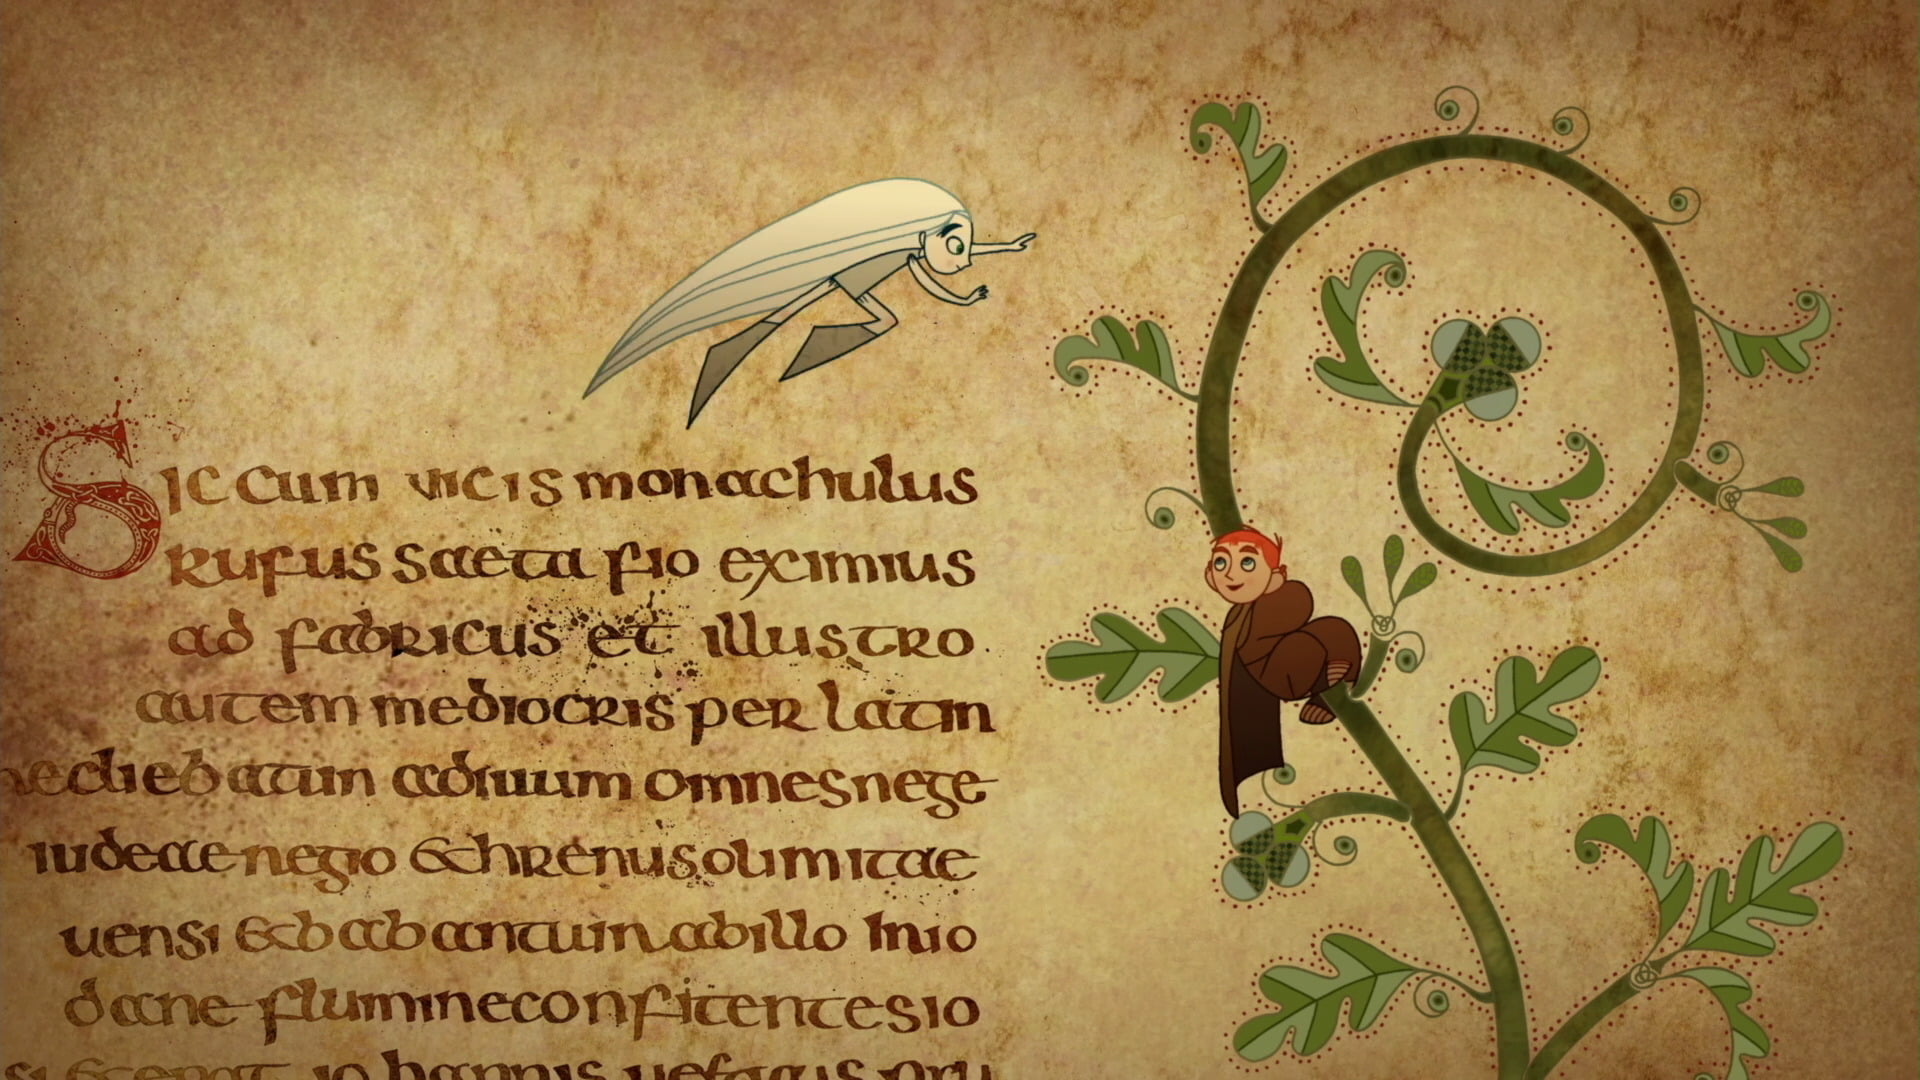 Sic cum vicis monachulus
rufus saeta fio eximius
ad fabricus et illustro
autem mediocris per latin
omnesnege
iudeaenegio &hrenusolimitae
uensi &babantuinabillo inio
daneflumineconfitentesio